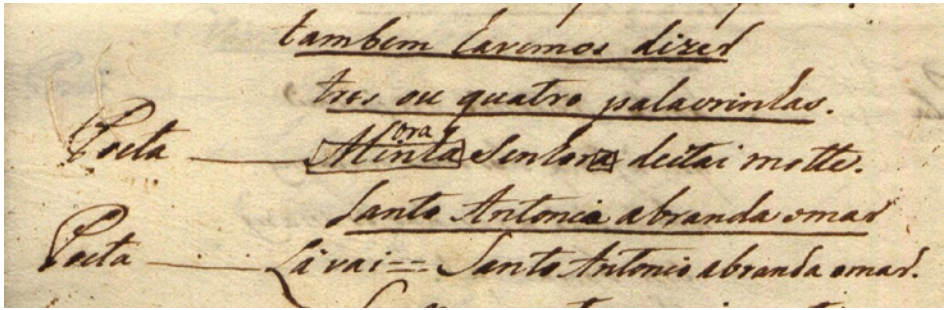 tambem havemos dizer
tres ou quatro palavrinhas.
Poeta — Minha ora Senhora deitai motte.
Santo Antonio abranda o mar
Poeta — Lá vai = Santo Antonio abranda o mar.